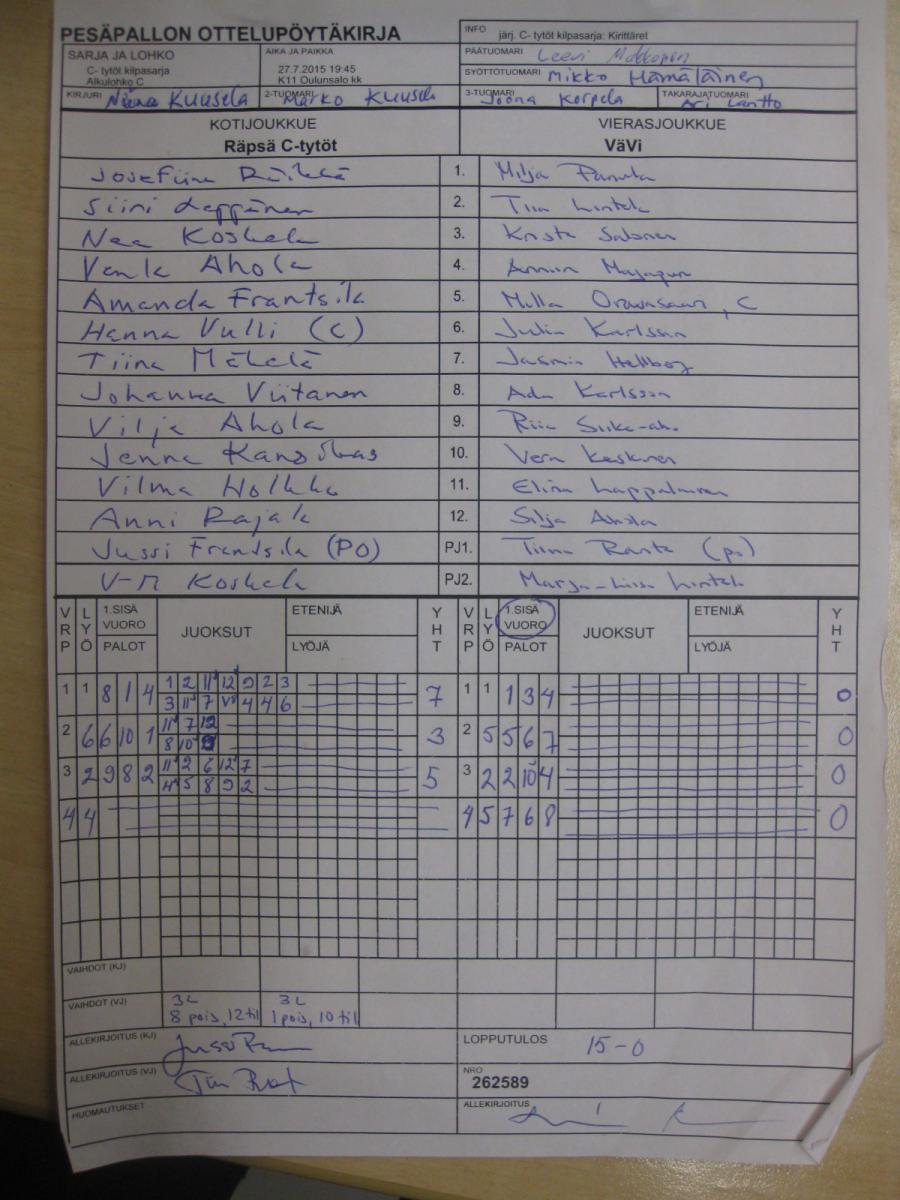 PESÄPALLON OTTELUPÖYTÄKIRJA
INFO järj. C- tytöt kilpasarja: Kirittäret
SARJA JA LOHKO
C- tytöt kilpasarja
Alkulohko C
AIKA JA PAIKKA
27.7.2015 19:45
K11 Oulunsalo kk
PÄÄTUOMARI Leevi
SYÖTTÖTUOMARI Mikko Hämäläinen
KIRJURI Niina Kuusela
2-TUOMARI Marko Kuusela
3-TUOMARI Joona Korpela
TAKARAJATUOMARI Ari Lantto
KOTIJOUKKUE
Räpsä C-tytöt
VIERASJOUKKUE
VäVi
Josefiina 1. Milja
Siini Leppänen 2. Tiia Lintala
Nea Koskela 3. Krista Salonen
Venla Ahola 4.
Amanda Frantsila 5. Milla , C
Hanna Vulli (C) 6. Julia Karlsson
Tiina Mäkelä 7. Jasmin Hellborg
Johanna Viitanen 8. Ada Karlsson
Vilja Ahola 9. Riia Siika-aho
Jenna Kansikas 10. Vera Keskinen
Vilma Holkko 11. Elina Lappalainen
Anni Rajala 12. Silja Ahola
Jussi Frantsila (PO) PJ1. Tiina Ranta (po)
V-M Koskela PJ2. Marja-Liisa Lintala
VRP LYÖ 1.SISÄ VUORO PALOT JUOKSUT ETENIJÄ LYÖJÄ YHT VRP LYÖ 1.SISÄ VUORO PALOT JUOKSUT ETENIJÄ LYÖJÄ YHT
1 1 8 1 4 1 2 11 12 9 2 3 7 1 1 1 3 4 0
3 11 7 V 4 4 6
2 6 6 10 1 11 7 12 3 2 5 5 6 7 0
8 10 9
3 2 9 8 2 11 2 6 12 7 5 3 2 2 10 4 0
4 5 8 9 2
4 4 4 5 7 6 8 0
VAIHDOT (KJ)
VAIHDOT (VJ) 3L 3L
8 pois, 12 til 1 pois, 10 til
ALLEKIRJOITUS (KJ)
LOPPUTULOS 15-0
ALLEKIRJOITUS (VJ)
NRO
262589
HUOMAUTUKSET
ALLEKIRJOITUS